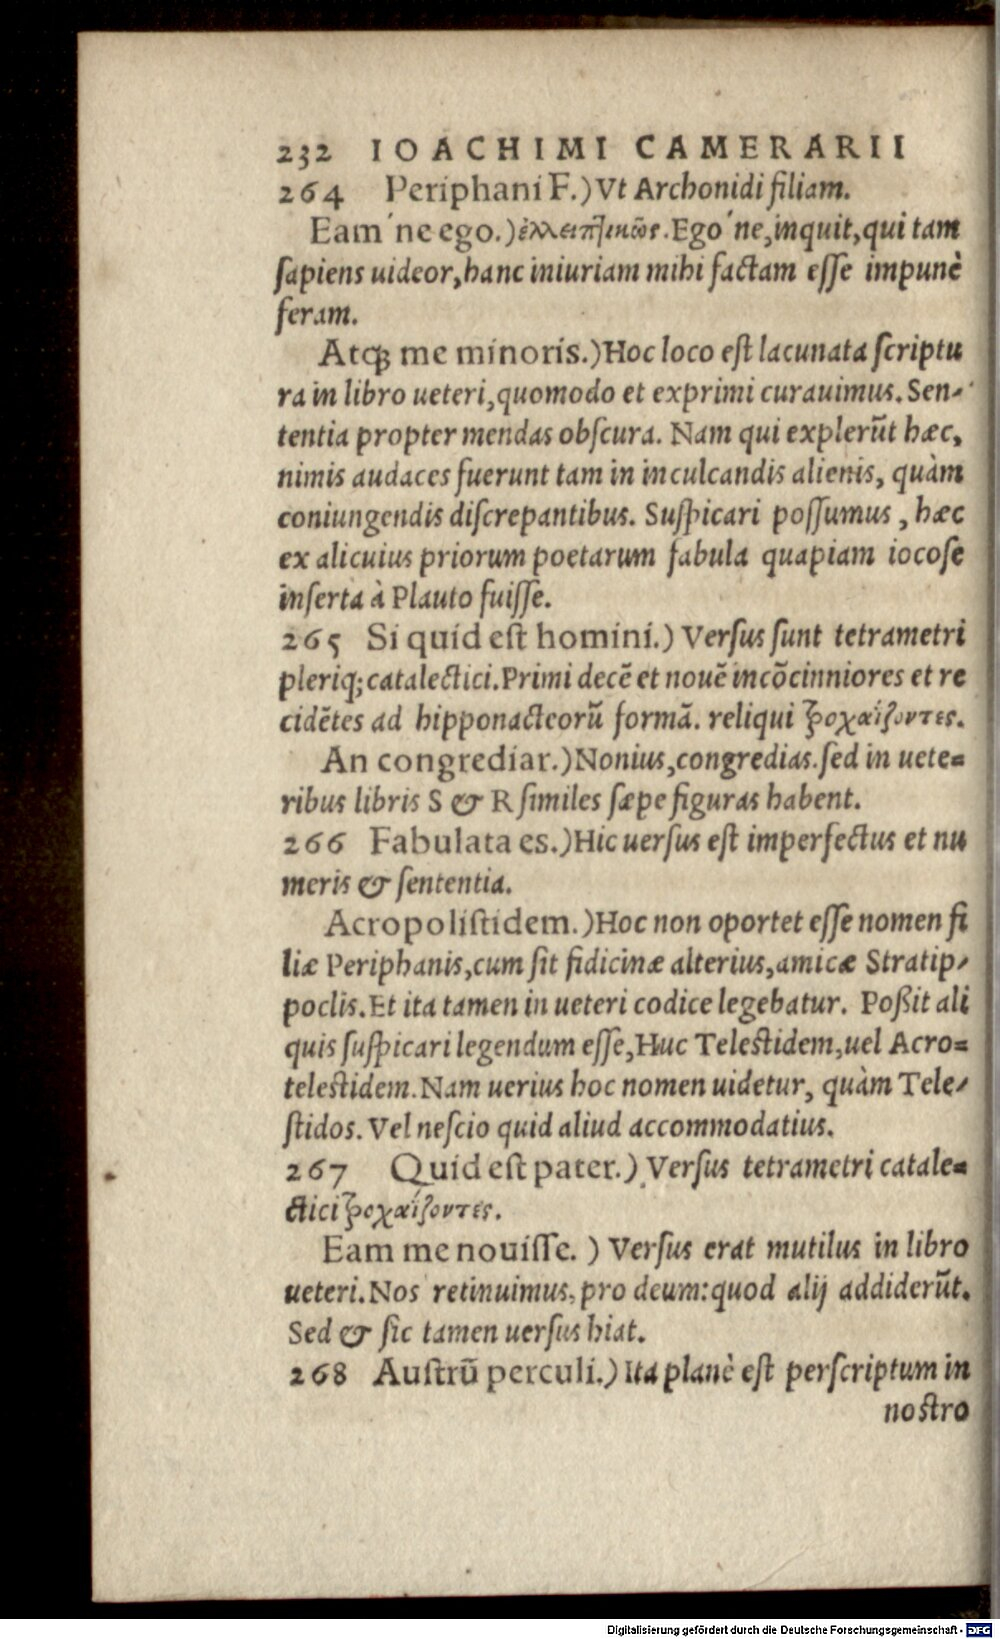 232 IOACHIMI CAMERARII
264 Periphani F.) Vt Archonidi filiam.
Eam´ne ego.) ἐλλειπτικῶς. Ego´ne, inquit, qui tam
sapiens uideor, hanc iniuriam mihi factam esse impunè
feram.
Atq́ꝫ me minoris.) Hoc loco est lacunata scriptu
ra in libro ueteri, quomodo et exprimi curauimus. Sen-
tentia propter mendas obscura. Nam qui explerũt hæc,
nimis audaces fuerunt tam in inculcandis alienis, quàm
coniungendis discrepantibus. Suspicari possumus, hæc
ex alicuius priorum poetarum fabula quapiam iocose
inserta à Plauto fuisse.
265 Si quid est homini.) Versus sunt tetrametri
pleriq; catalectici. Primi decẽ et nouẽ incõcinniores et re
cidẽtes ad hipponacteorũ formã. reliqui τροχαΐζοντες.
An congrediar.) Nonius, congredias. sed in uete=
ribus libris S & R similes sæpe figuras habent.
266 Fabulata es.) Hic uersus est imperfectus et nu
meris & sententia.
Acropolistidem.) Hoc non oportet esse nomen fi
liæ Periphanis, cum sit fidicinæ alterius, amicæ Stratip-
poclis. Et ita tamen in ueteri codice legebatur. Poßit ali
quis suspicari legendum esse, Huc Telestidem, uel Acro=
telestidem. Nam uerius hoc nomen uidetur, quàm Tele-
stidos. Vel nescio quid aliud accommodatius.
267 Quid est pater.) Versus tetrametri catale=
ctici τροχαΐζοντες.
Eam me nouisse.) Versus erat mutilus in libro
ueteri. Nos retinuimus, pro deum: quod alij addiderũt.
Sed & sic tamen uersus hiat.
268 Austrũ perculi.) Ita planè est perscriptum in
nostro
Digitalisierung gefördert durch die Deutsche Forschungsgemeinschaft - DFG